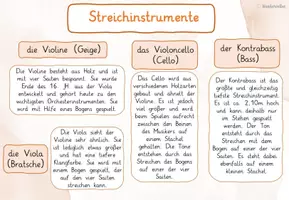 Streichinstrumente
die Violine (Geige)
Die Violine besteht aus Holz und ist
mit vier Saiten bespannt. Sie wurde
Ende des 16. JH. aus der Viola
entwickelt und gehört heute zu den
wichtigsten Orchesterinstrumenten. Sie
wird mit Hilfe eines Bogens gespielt.
die Viola
(Bratsche)
Die Viola sieht der
Violine sehr ähnlich. Sie
ist lediglich etwas größer
und hat eine tiefere
Klangfarbe. Sie wird mit
einem Bogen gespielt, der
auf den vier Saiten
streichen kann.
das Violoncello
(Cello)
Das Cello wird aus
verschiedenen Holzarten
gebaut und ähnelt der
Violine. Es ist jedoch
viel größer und wird
beim Spielen aufrecht
zwischen den Beinen
des Musikers auf
einem Stachel
gehalten. Die Töne
entstehen durch das
Streichen des Bogens
auf einer der vier
Saiten.
der Kontrabass
(Bass)
Der Kontrabass ist das
größte und gleichzeitig
tiefste Streichinstrument.
Es ist ca. 2,10m hoch
und kann deshalb nur
im Stehen gespielt
werden. Der Ton
entsteht durch das
Streichen mit dem
Bogen auf einer der vier
Saiten. Es steht dabei
ebenfalls auf einem
kleinen Stachel.